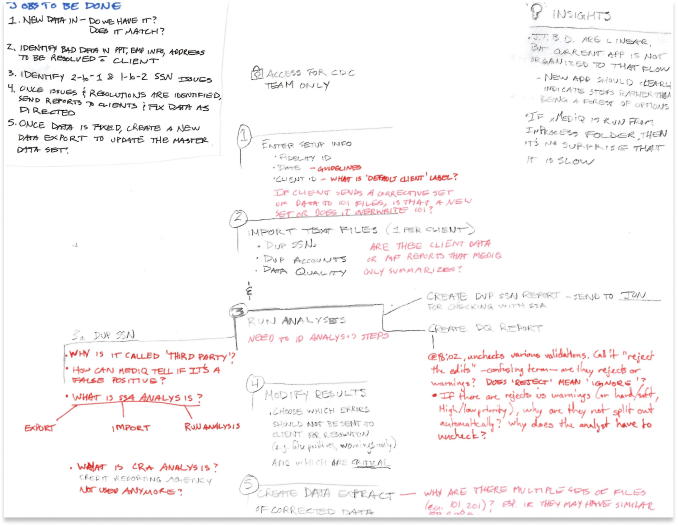 JOBS TO BE DONE
1. NEW DATA IN - DO WE HAVE IT?
DOES IT MATCH?
2. IDENTIFY BAD DATA IN PPT, EMP INFO, ADDRESS
TO BE RESOLVED CLIENT
3. IDENTIFY 2-6-1 & 1-6-2 SSN ISSUES
4. ONCE ISSUES & RESOLUTIONS ARE IDENTIFIED,
SEND REPORTS TO CLIENTS & FIX DATA AS
DIRECTED
5. ONCE DATA IS FIXED, CREATE A NEW
DATA EXPORT TO UPDATE THE MASTER
DATA SET.
INSIGHTS
J.T.B.D. ARE LINEAR,
BUT CURRENT APP IS NOT
ORGANIZED TO THAT FLOW
- NEW APP SHOULD CLEARLY
INDICATE STEPS RATHER THAN
BEING A FOREST OF OPTIONS
IF MEDIQ IS RUN FROM
INPROCESS FOLDER, THEN
IT'S NO SURPRISE THAT
IT IS SLOW
ACCESS FOR CDC
TEAM ONLY
1
ENTER SETUP INFO
• FIDELITY ID
• DATE - GUIDELINES
• CLIENT ID - WHAT IS 'DEFAULT CLIENT' LABEL?
IF CLIENT SENDS A CORRECTIVE SET
OF DATA TO 101 FILES, IS THAT A NEW
SET OR DOES IT OVERWRITE 101?
2
IMPORT TEXT FILES (1 PER CLIENT)
• DUP SSN
• DUP ACCOUNTS
• DATA QUALITY
ARE THESE CLIENT DATA
OR MF REPORTS THAT MEDIQ
ONLY SUMMARIZES?
&
3
RUN ANALYSES
NEED TO ID ANALYSIS STEPS
CREATE DUP SSN REPORT - SEND TO JON
FOR CHECKING WITH SSA
CREATE DQ REPORT
@18:02, unchecks various validations. Call it "reject
the edits" - confusing term - are they rejects or
warnings? DOES 'REJECT' MEAN 'IGNORE'?
• If there are rejects vs warnings (or hard/soft,
High/low priority), why are they not split out
automatically? why does the analyst have to
uncheck?
3a DUP SSN
• WHY IS IT CALLED 'THIRD PARTY'?
• HOW CAN MEDIQ TELL IF IT'S A
FALSE POSITIVE?
• WHAT IS SSA ANALYSIS?
EXPORT IMPORT RUN ANALYSIS
• WHAT IS CRA ANALYSIS?
CREDIT REPORTING AGENCY
NOT USED ANYMORE?
4
MODIFY RESULTS
• CHOOSE WHICH ERRORS
SHOULD NOT BE SENT TO
CLIENT FOR RESOLUTION
(e.g. false positives, warnings only)
AND WHICH ARE CRITICAL
5
CREATE DATA EXTRACT
OF CORRECTED DATA
WHY ARE THERE MULTIPLE SETS OF FILES
(eg. 101, 201)? ESP IF THEY MAY HAVE SIMILAR